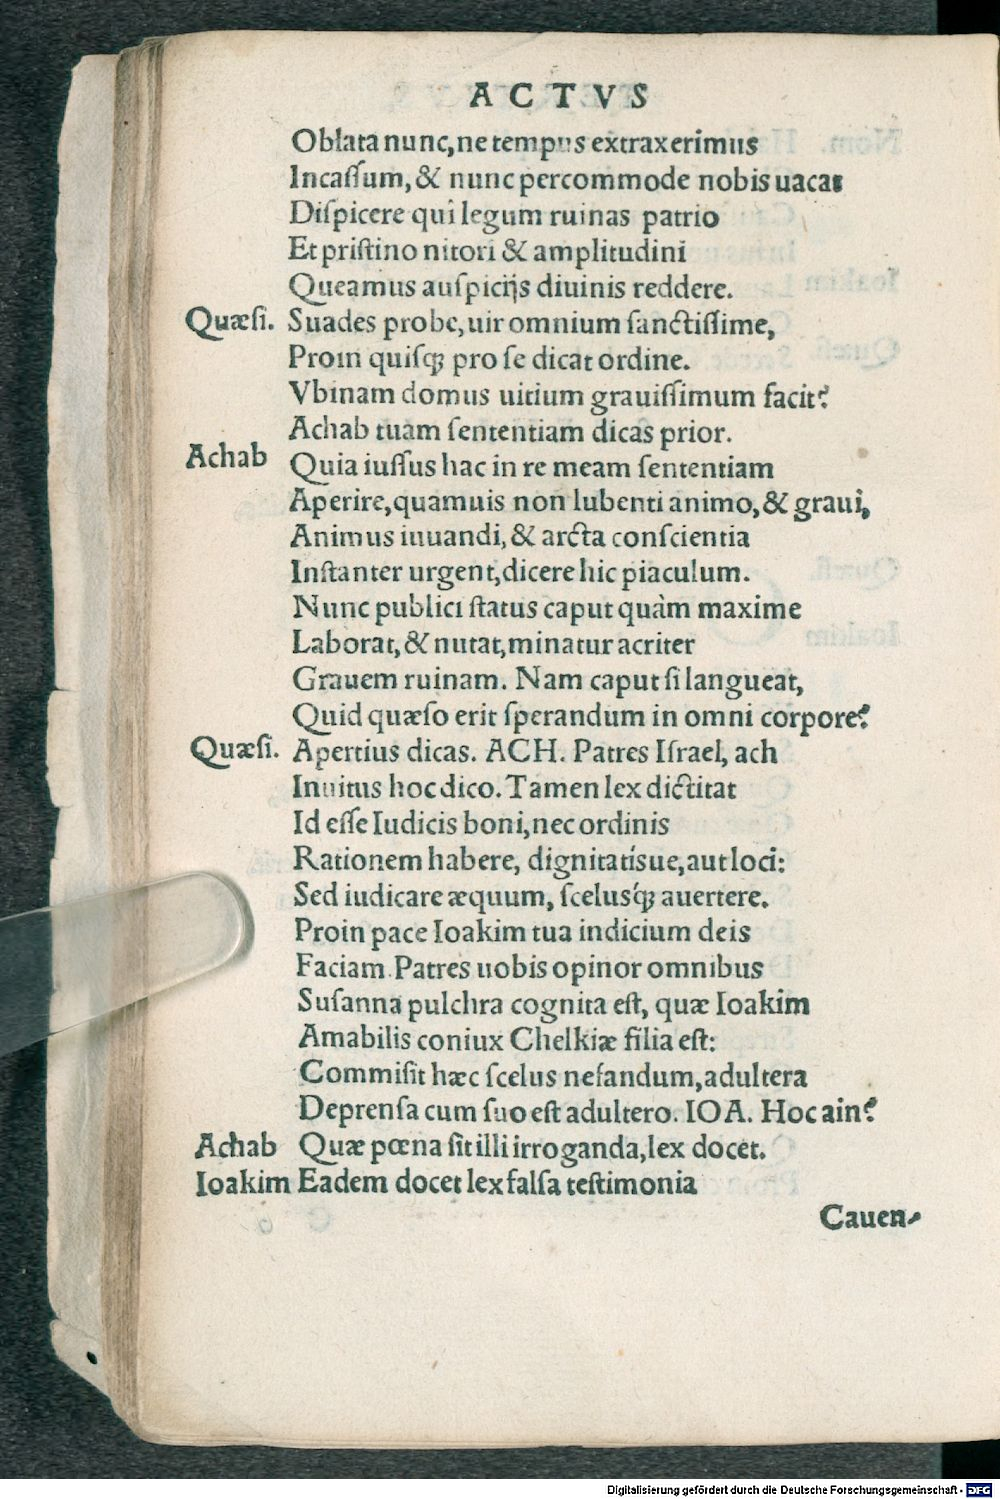 ACTVS
Oblata nunc, ne tempus extraxerimus
Incaſſum, & nunc percommode nobis uacat
Diſpicere qui legum ruinas patrio
Et priſtino nitori & amplitudini
Queamus auſpicijs diuinis reddere.
Quæſi. Suades probe, uir omnium ſanctiſſime,
Proin quiſqꝫ pro ſe dicat ordine.
Vbinam domus uitium grauiſſimum facit?
Achab tuam ſententiam dicas prior.
Achab Quia iuſſus hac in re meam ſententiam
Aperire, quamuis non lubenti animo, & graui,
Animus iuuandi, & arcta conſcientia
Inſtanter urgent, dicere hic piaculum.
Nunc publici ſtatus caput quàm maxime
Laborat, & nutat, minatur acriter
Grauem ruinam. Nam caput ſi langueat,
Quid quæſo erit ſperandum in omni corpore?
Quæſi. Apertius dicas. ACH. Patres Iſrael, ach
Inuitus hoc dico. Tamen lex dictitat
Id eſſe Iudicis boni, nec ordinis
Rationem habere, dignitatísue, aut loci:
Sed iudicare æquum, ſcelusq́ꝫ auertere.
Proin pace Ioakim tua indicium deis
Faciam. Patres uobis opinor omnibus
Suſanna pulchra cognita eſt, quæ Ioakim
Amabilis coniux Chelkiæ filia eſt:
Commiſit hæc ſcelus nefandum, adultera
Deprenſa cum ſuo eſt adultero. IOA. Hoc ain?
Achab Quæ pœna ſit illi irroganda, lex docet.
Ioakim Eadem docet lex falſa teſtimonia
Cauen-
Digitalisierung gefördert durch die Deutsche Forschungsgemeinschaft - DFG